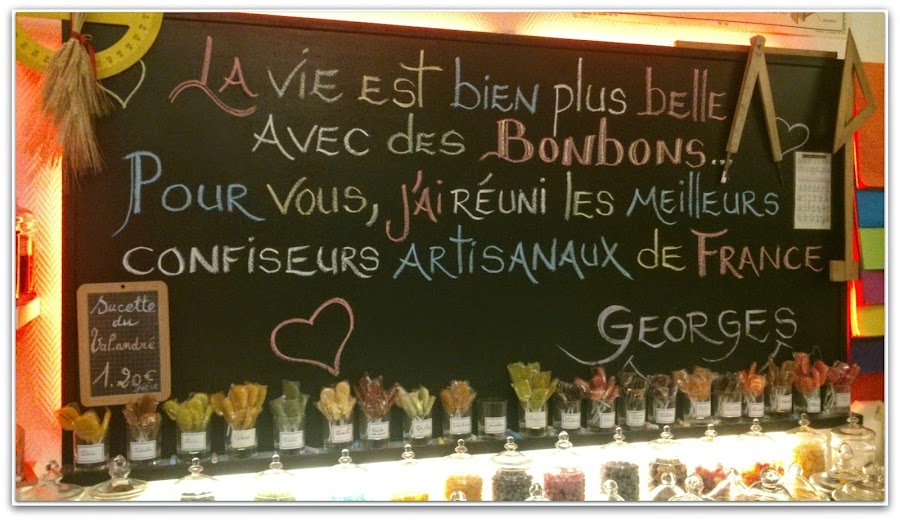 La vie est bien plus belle
avec des Bonbons...
Pour vous, j'ai réuni les meilleurs
confiseurs artisanaux de France
Georges
Sucette
du
Val André
1.20€
pièce